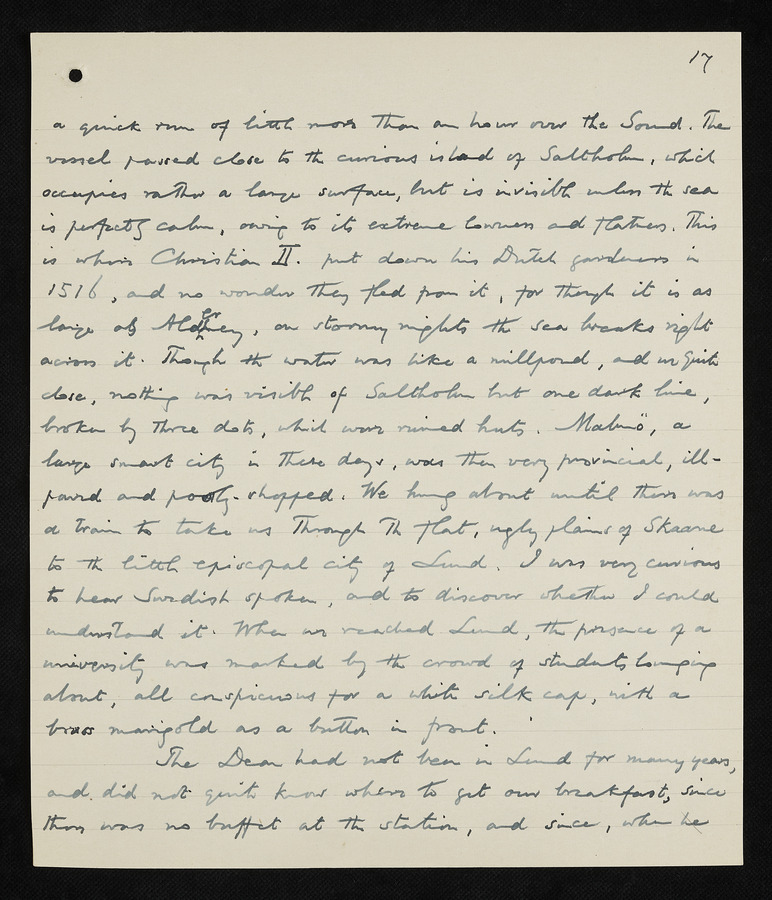 17
a quick run of little more than an hour over the Sound. The
vessel passed close to the curious island of Saltholm, which
occupies rather a large surface, but is invisible unless the sea
is perfectly calm, owing to its extreme lowness and flatness. This
is where Christian II. put down his Dutch gardeners in
1516, and no wonder they fled from it, for though it is as
large as Alderney, on stormy nights the sea breaks right
across it. Though the water was like a millpond, and we quite
close, nothing was visible of Saltholm but one dark line,
broken by three dots, which were ruined huts. Malmö, a
large smart city in these days, was then very provincial, ill-
paved and poorly-shopped. We hung about until there was
a train to take us through the flat, ugly plains of Skaane
to the little episcopal city of Lund. I was very curious
to hear Swedish spoken, and to discover whether I could
understand it. When we reached Lund, the presence of a
university was marked by the crowd of students lounging
about, all conspicuous for a white silk cap, with a
brass marigold as a button in front.
The Dean had not been in Lund for many years,
and did not quite know where to get our breakfast, since
there was no buffet at the station, and since, when he